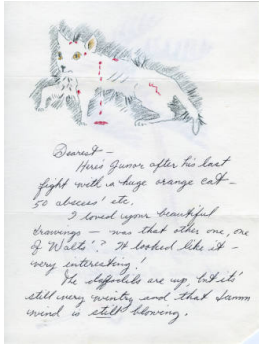 Dearest —
Here's Junor after his last
fight with a huge orange cat —
50 abscess' etc.
I loved your beautiful
drawings — was that other one, one
of "Walts"? It looked like it —
very interesting!
The daffodils are up, but its'
still very wintry and that damn
wind is still blowing.